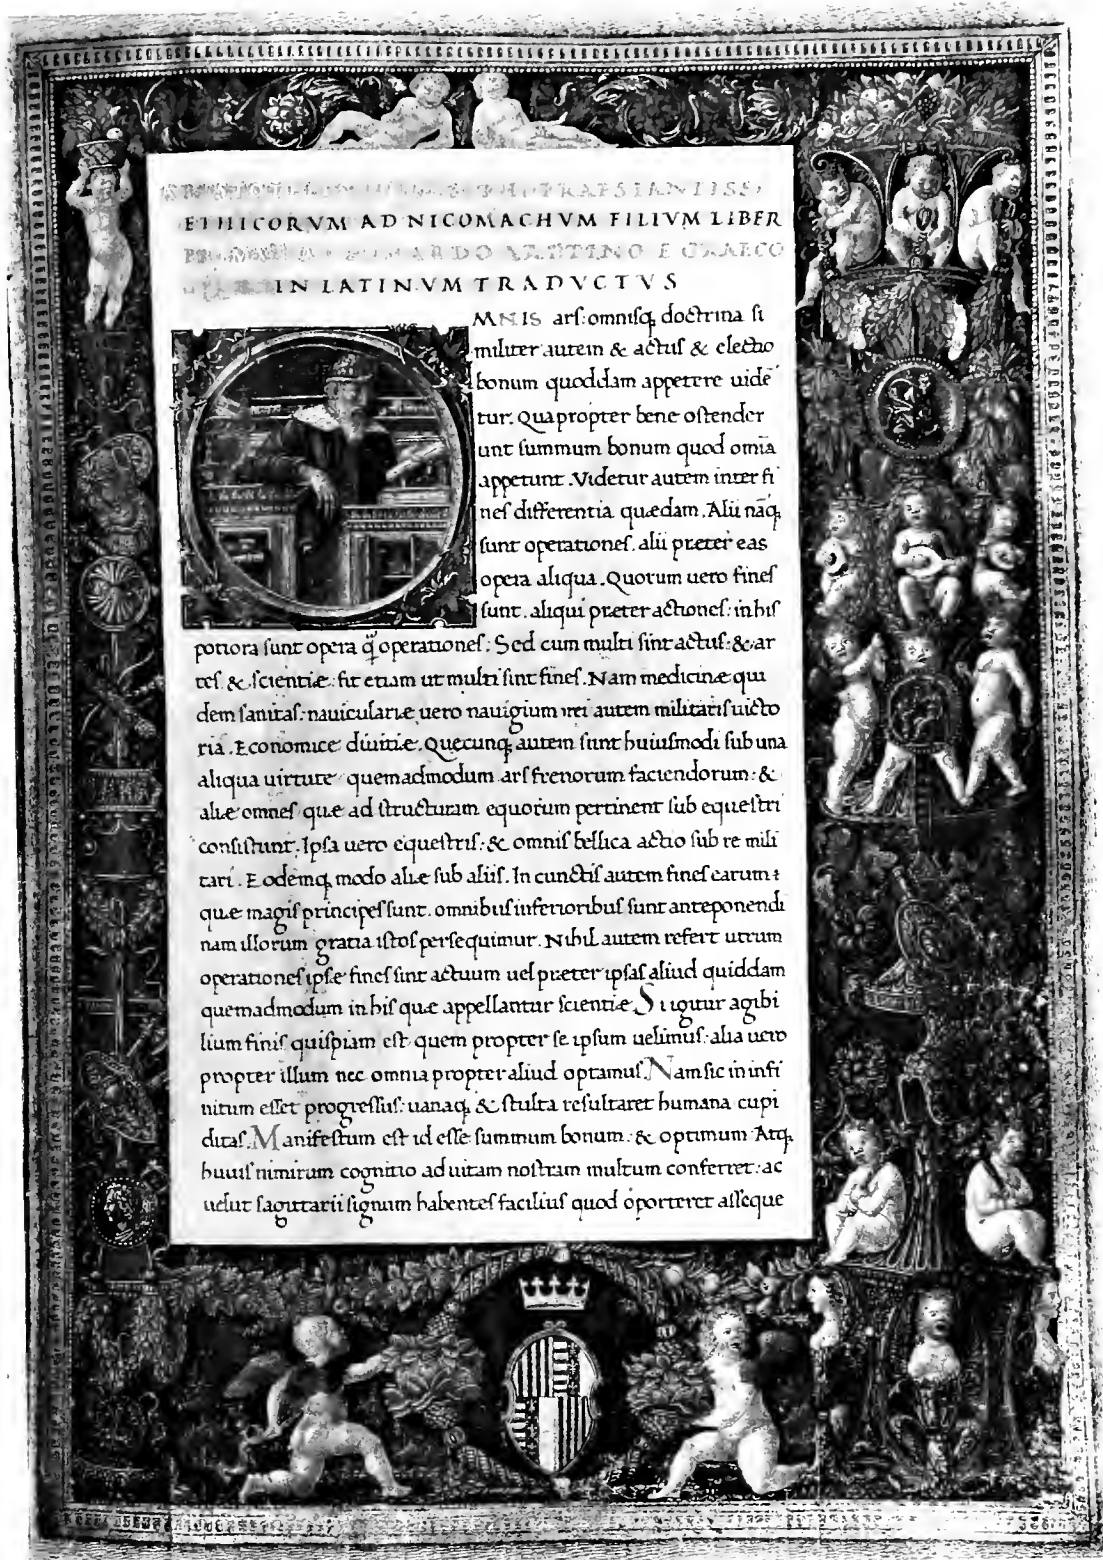 PRAESTANTISSI
ETHICORVM AD NICOMACHVM FILIVM LIBER
ARETINO E GRAECO
IN LATINVM TRADVCTVS
MNIS arſ: omniſq; doctrina ſi
militer autem & actuſ & electio
bonum quoddam appetere uidē
tur. Quapropter bene oſtender
unt ſummum bonum quod omīa
appetunt. Videtur autem inter fi
neſ differentia quædam. Alii nāq;
ſunt operationeſ. alii præter eas
opera aliqua. Quorum uero fineſ
ſunt. aliqui præter actioneſ: in hiſ
potiora ſunt opera q̄ operationeſ: Sed cum multi ſint actuſ: & ar
teſ & ſcientiæ: fit etiam ut multi ſint fineſ. Nam medicinæ qui
dem ſanitaſ: nauiculariæ uero nauigium rei autem militariſ uicto
ria. Economice diuitiæ. Quecunq; autem ſunt huiuſmodi ſub una
aliqua uirtute quemadmodum arſ frenorum faciendorum: &
aliæ omneſ quæ ad ſtructuram equorum pertinent ſub equeſtri
conſiſtunt. Ipſa uero equeſtriſ: & omniſ bellica actio ſub re mili
tari. Eodemq; modo aliæ ſub aliiſ. In cunctiſ autem fineſ earum:
quæ magiſ principeſ ſunt. omnibuſ inferioribuſ ſunt anteponendi
nam illorum gratia iſtoſ perſequimur. Nihil autem refert utrum
operationeſ ipſæ fineſ ſint actuum uel præter ipſaſ aliud quiddam
quemadmodum in hiſ quæ appellantur ſcientiæ Si igitur agibi
lium finiſ quiſpiam eſt quem propter ſe ipſum uelimuſ: alia uero
propter illum nec omnia propter aliud optamuſ. Nam ſic in infi
nitum eſſet progreſſuſ: uanaq; & ſtulta reſultaret humana cupi
ditaſ. Manifeſtum eſt id eſſe ſummum bonum: & optimum Atq;
huuiſ nimirum cognitio ad uitam noſtram multum conferret: ac
uelut ſagittarii ſignum habenteſ faciliuſ quod oporteret aſſeque